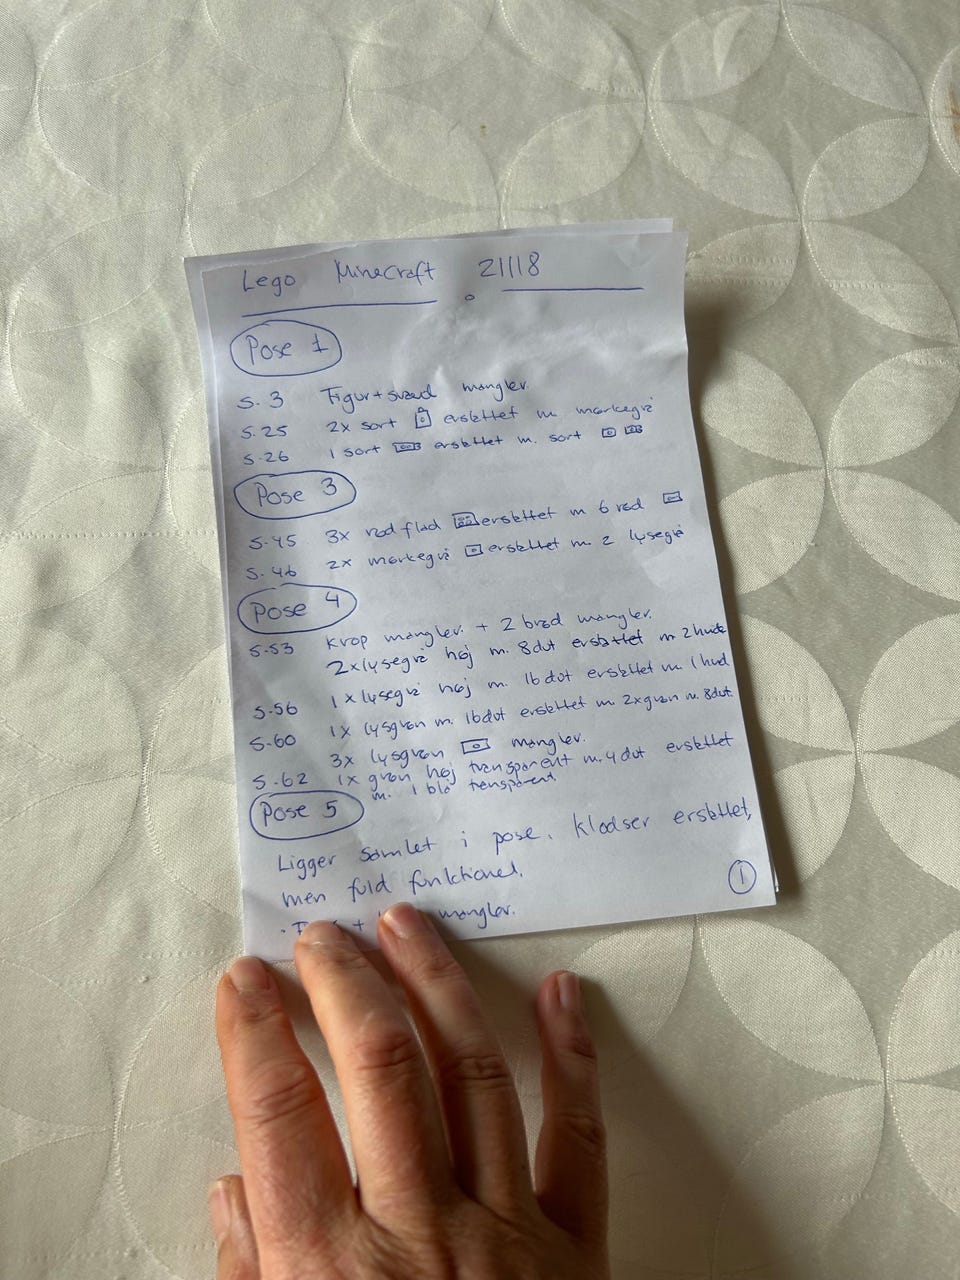 Lego Minecraft 21118
Pose 1
S. 3 Figur + sværd mangler.
S. 25 2x sort erstattet m. mørkegrå
S. 26 1 sort erstattet m. sort
Pose 3
S. 45 3x rød flad erstattet m 6 rød
S. 46 2x mørkegrå erstattet m. 2 lysegrå
Pose 4
S. 53 Krop mangler. + 2 brød mangler.
2x lysegrå høj m. 8 dut erstattet m 2 hvide
S. 56 1x lysegrå høj m. 16 dut erstattet m. 1 hvid
S. 60 1x lysgrøn m. 16 dut erstattet m. 2x grøn m. 8 dut.
3x lysgrøn mangler.
S. 62 1x grøn høj transparent m. 4 dut erstattet
m. 1 blå transparent.
Pose 5
Ligger samlet i pose. Klodser erstattet,
men fuld funktionel.
+ mangler.
1